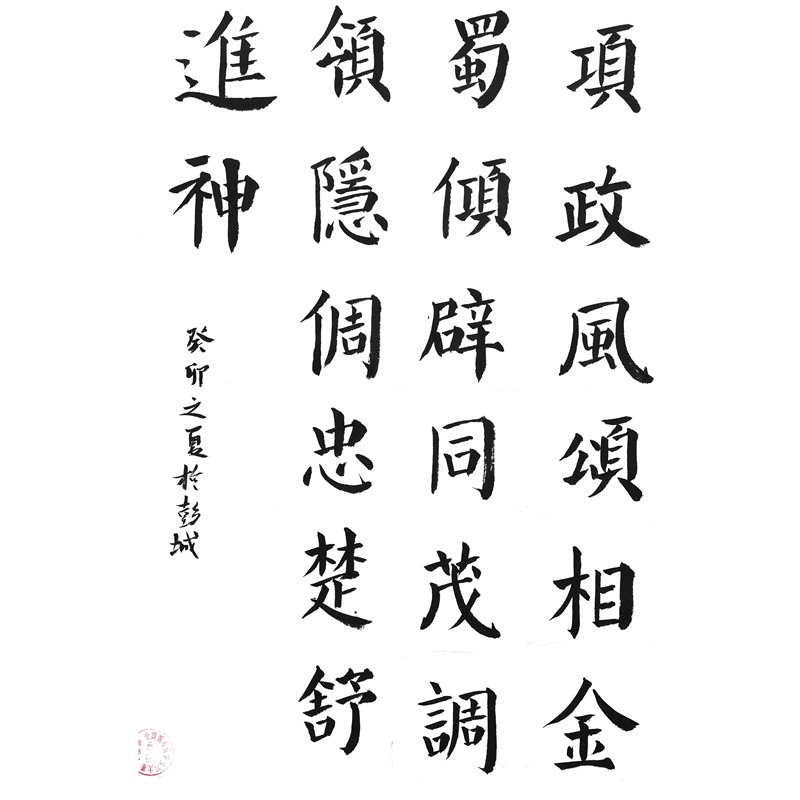 項政風頌相金
蜀傾辟同茂調
領隱倜忠楚舒
進神
癸卯之夏於彭城